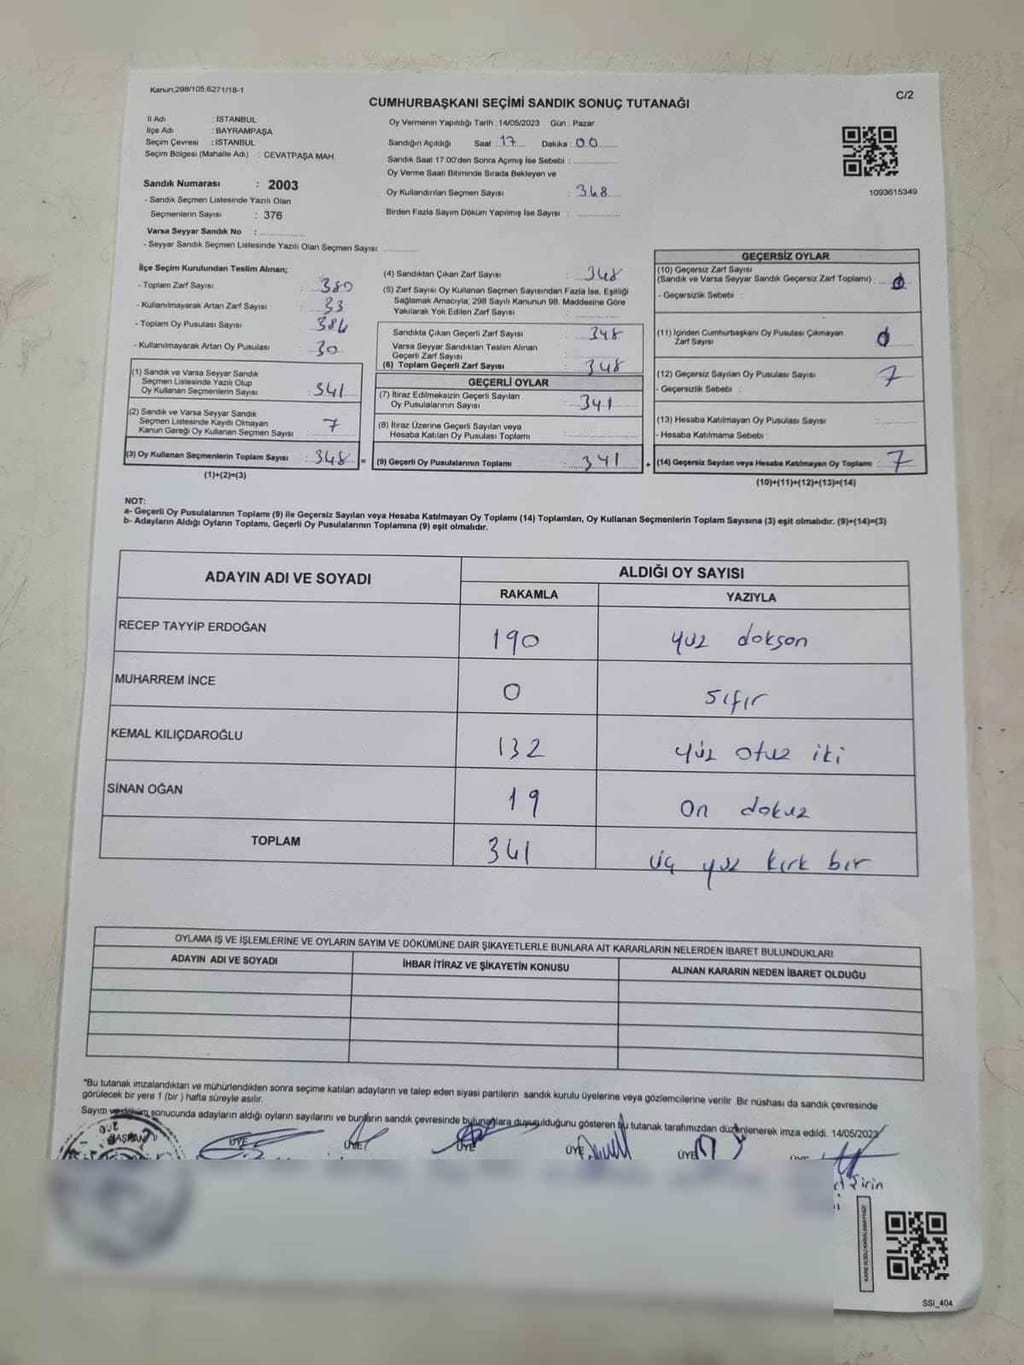 Kanun;298/105;6271/18-1
C/2
CUMHURBAŞKANI SEÇİMİ SANDIK SONUÇ TUTANAĞI
İl Adı : İSTANBUL
İlçe Adı : BAYRAMPAŞA
Seçim Çevresi : İSTANBUL
Seçim Bölgesi (Mahalle Adı) : CEVATPAŞA MAH.
Sandık Numarası : 2003
- Sandık Seçmen Listesinde Yazılı Olan
Seçmenlerin Sayısı : 376
Varsa Seyyar Sandık No :
- Seyyar Sandık Seçmen Listesinde Yazılı Olan Seçmen Sayısı:
Oy Vermenin Yapıldığı Tarih :14/05/2023 Gün : Pazar
Sandığın Açıldığı Saat : 17 Dakika : 00
Sandık Saat 17:00'den Sonra Açılmış İse Sebebi :
Oy Verme Saati Bitiminde Sırada Bekleyen ve
Oy Kullandırılan Seçmen Sayısı : 348
Birden Fazla Sayım Döküm Yapılmış İse Sayısı :
1093615349
İlçe Seçim Kurulundan Teslim Alınan;
- Toplam Zarf Sayısı : 380
- Kullanılmayarak Artan Zarf Sayısı : 33
- Toplam Oy Pusulası Sayısı : 384
- Kullanılmayarak Artan Oy Pusulası : 30
(1) Sandık ve Varsa Seyyar Sandık
Seçmen Listesinde Yazılı Olup
Oy Kullanan Seçmenlerin Sayısı : 341
(2) Sandık ve Varsa Seyyar Sandık
Seçmen Listesinde Kayıtlı Olmayan
Kanun Gereği Oy Kullanan Seçmen Sayısı : 7
(3) Oy Kullanan Seçmenlerin Toplam Sayısı : 348
(1)+(2)=(3)
(4) Sandıktan Çıkan Zarf Sayısı : 348
(5) Zarf Sayısı Oy Kullanan Seçmen Sayısından Fazla İse, Eşitliği
Sağlamak Amacıyla; 298 Sayılı Kanunun 98. Maddesine Göre
Yakılarak Yok Edilen Zarf Sayısı :
Sandıkta Çıkan Geçerli Zarf Sayısı : 348
Varsa Seyyar Sandıktan Teslim Alınan
Geçerli Zarf Sayısı :
(6) Toplam Geçerli Zarf Sayısı : 348
GEÇERLİ OYLAR
(7) İtiraz Edilmeksizin Geçerli Sayılan
Oy Pusulalarının Sayısı : 341
(8) İtiraz Üzerine Geçerli Sayılan veya
Hesaba Katılan Oy Pusulası Toplamı :
(9) Geçerli Oy Pusulalarının Toplamı : 341
GEÇERSİZ OYLAR
(10) Geçersiz Zarf Sayısı
(Sandık ve Varsa Seyyar Sandık Geçersiz Zarf Toplamı) : 0
- Geçersizlik Sebebi :
(11) İçinden Cumhurbaşkanı Oy Pusulası Çıkmayan
Zarf Sayısı : 0
(12) Geçersiz Sayılan Oy Pusulası Sayısı : 7
- Geçersizlik Sebebi :
(13) Hesaba Katılmayan Oy Pusulası Sayısı :
- Hesaba Katılmama Sebebi :
(14) Geçersiz Sayılan veya Hesaba Katılmayan Oy Toplamı : 7
(10)+(11)+(12)+(13)=(14)
NOT:
a- Geçerli Oy Pusulalarının Toplamı (9) ile Geçersiz Sayılan veya Hesaba Katılmayan Oy Toplamı (14) Toplamları, Oy Kullanan Seçmenlerin Toplam Sayısına (3) eşit olmalıdır. (9)+(14)=(3)
b- Adayların Aldığı Oyların Toplamı, Geçerli Oy Pusulalarının Toplamına (9) eşit olmalıdır.
ADAYIN ADI VE SOYADI ALDIĞI OY SAYISI
RAKAMLA YAZIYLA
RECEP TAYYİP ERDOĞAN 190 yüz doksan
MUHARREM İNCE 0 sıfır
KEMAL KILIÇDAROĞLU 132 yüz otuz iki
SİNAN OĞAN 19 on dokuz
TOPLAM 341 üç yüz kırk bir
OYLAMA İŞ VE İŞLEMLERİNE VE OYLARIN SAYIM VE DÖKÜMÜNE DAİR ŞİKAYETLERLE BUNLARA AİT KARARLARIN NELERDEN İBARET BULUNDUKLARI
ADAYIN ADI VE SOYADI İHBAR İTİRAZ VE ŞİKAYETİN KONUSU ALINAN KARARIN NEDEN İBARET OLDUĞU
*Bu tutanak imzalandıktan ve mühürlendikten sonra seçime katılan adayların ve talep eden siyasi partilerin sandık kurulu üyelerine veya gözlemcilerine verilir. Bir nüshası da sandık çevresinde
görülecek bir yere 1 (bir ) hafta süreyle asılır.
Sayım ve döküm sonucunda adayların aldığı oyların sayılarını ve bunların sandık çevresinde bulunanlara duyurulduğunu gösteren bu tutanak tarafımızdan düzenlenerek imza edildi. 14/05/2023
BAŞKAN ÜYE ÜYE ÜYE ÜYE ÜYE
Şirin
SSI_404